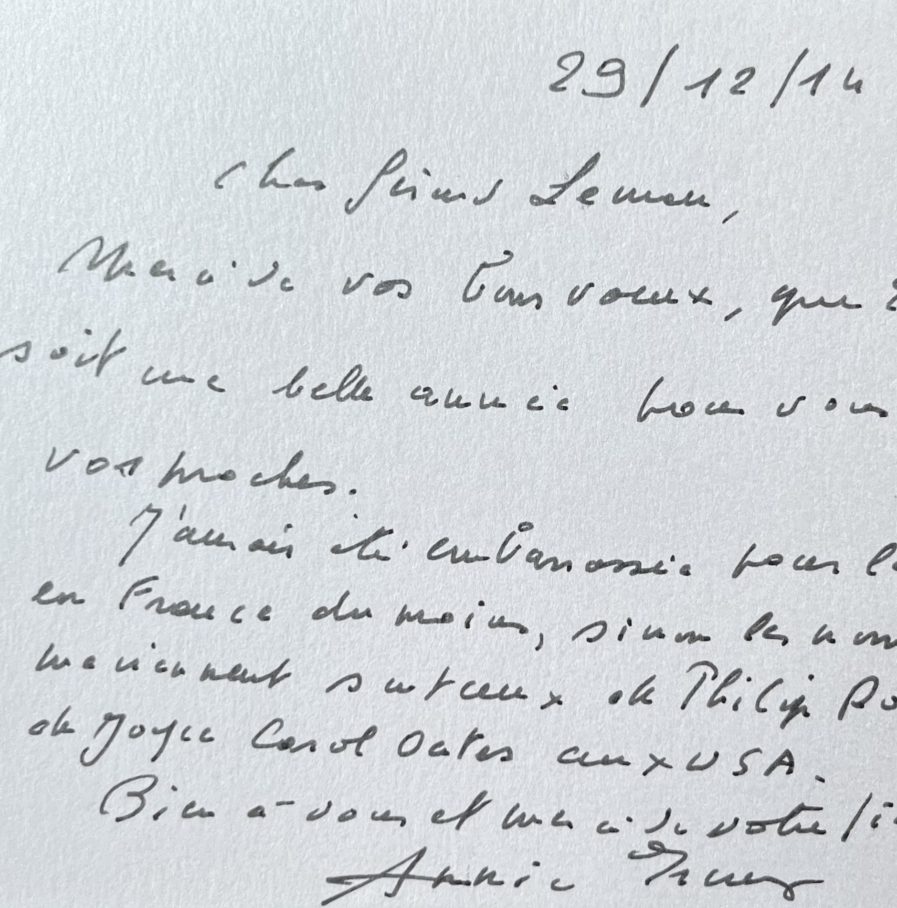 29/12/14
Cher
Merci de vos bons voeux, que 2
soit une belle année pour vous
vos proches.
J'aurais été embarrassée pour l
en France du moins, sinon les nom
me viennent sont ceux de Philip Ro
de Joyce Carol Oates aux USA.
Bien à vous et merci de votre li
Annie Ernaux